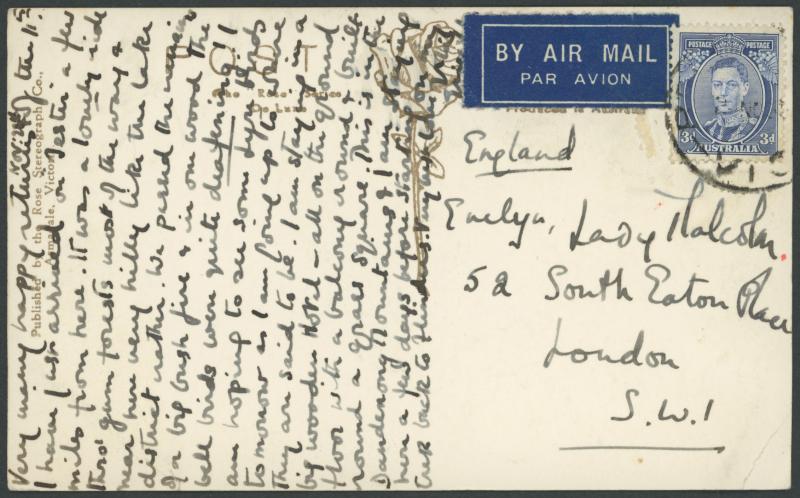 Very many happy returns
I have just arrived on Tester a few
miles from here. It was a lovely ride
thro' gum forests most of the way &
near here very hilly like the lake
district rather. We passed the remains
of a big bush fire & in one wood the
bell birds were quite deafening!! I
am hoping to see some lyre birds
tomorrow as I am going up to where
they are said to be. I am staying in a
big wooden Hotel – all on the ground
floor with a balcony round & built
round a grass square. This is in the
Dandenong Mountains & I am staying
here a few days before starting
trek back to
POST
The Rose Series
De Luxe
Published by the Rose Stereograph Co.,
Armadale, Victoria
Produced in Australia
BY AIR MAIL
PAR AVION
POSTAGE POSTAGE
3d 3d
AUSTRALIA
VIC
England
Evelyn, Lady Malcolm
52 South Eaton Place
London
S.W.1